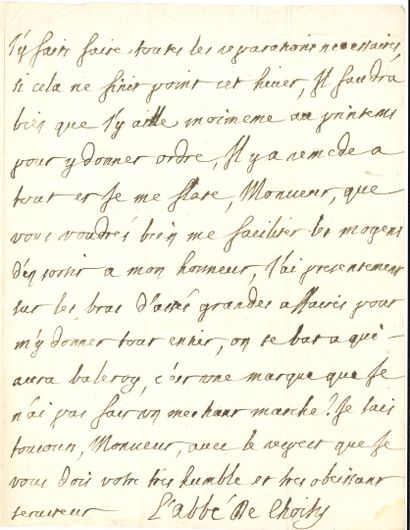 J'y faits faire toutes les reparations necessaires,
si cela ne finit point cet hiver, Il faudra
bien que J'y aille moimeme au printems
pour y donner ordre, Il y a remede a
tout et Je me flate, Monsieur, que
vous voudrés bien me faciliter les moyens
d'en sortir a mon honneur, J'ai presentement
sur les bras d'assés grandes affaires pour
m'y donner tout entier, on se bat a qui
aura baleroy, c'est une marque que Je
n'ai pas fait un mechant marché? Je suis
toujours, Monsieur, avec le respect que Je
vous dois votre tres humble et tres obeissant
serviteur L'abbé De Choisy